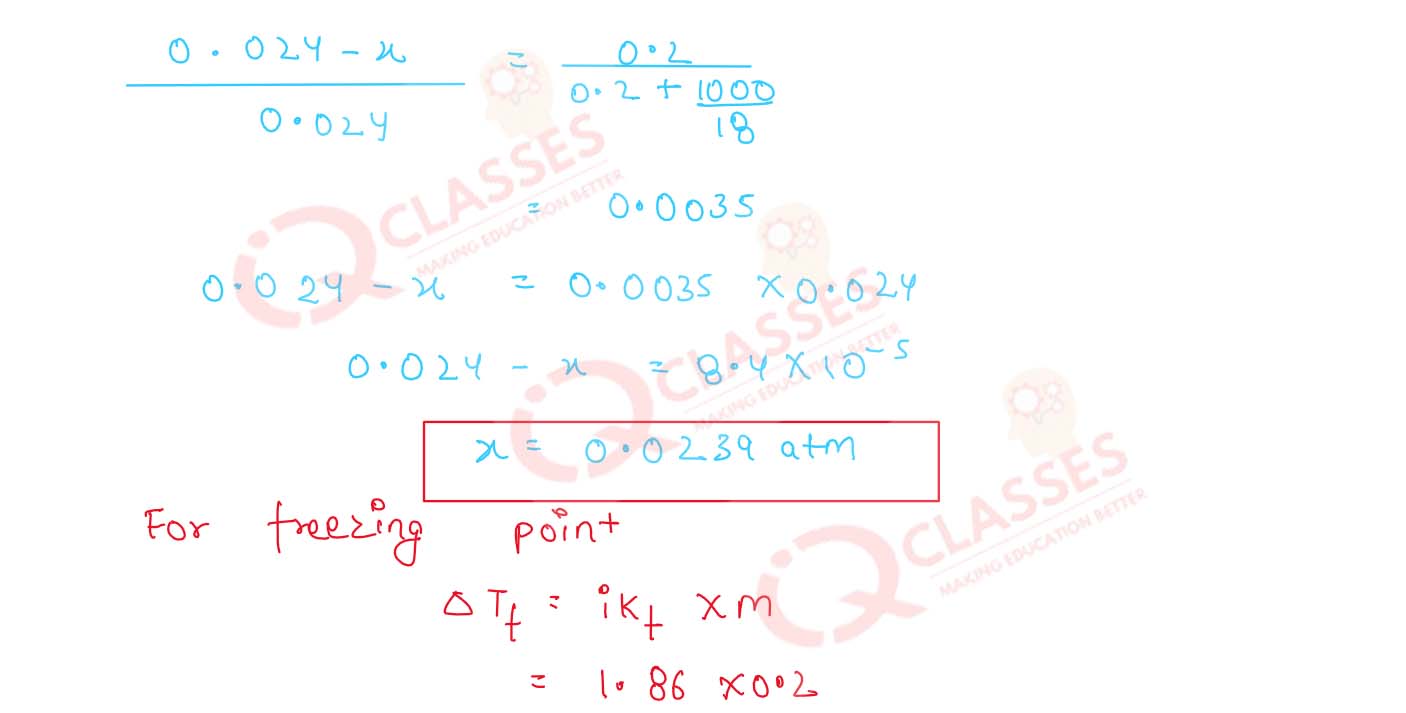 0.024 - x / 0.024 = 0.2 / 0.2 + 1000/18
= 0.0035
0.024 - x = 0.0035 × 0.024
0.024 - x = 8.4 × 10⁻⁵
x = 0.0239 atm
For freezing point
Δ T_f = i K_f × m
= 1.86 × 0.2
IQ CLASSES
MAKING EDUCATION BETTER
IQ CLASSES
MAKING EDUCATION BETTER
IQ CLASSES
MAKING EDUCATION BETTER